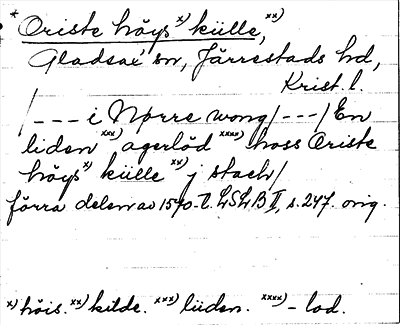 * Oriste höys x) külle, xx)
Gladsax sn, Järrestads hd,
Krist. l.
/--- i Nørre wong/---/ En
liden xxx) agerlöd xxxx) hoss Oriste
höys x) külle xx) j stach/
förra delen av 1570-t. LSLB II, s. 247. orig.
x) höis. xx) kilde. xxx) liiden. xxxx) -lod.